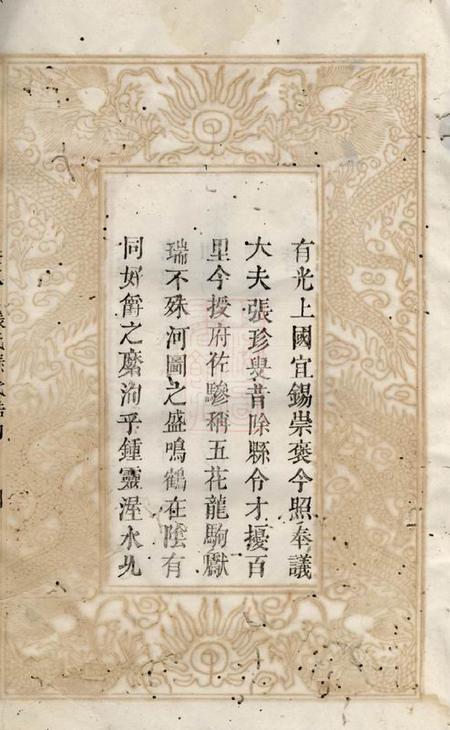 有光上國宜錫崇褒今照奉議
大夫張珍叟昔除縣令才擾百
里今授府佐驂稱五花龍駒獻
瑞不殊河圖之盛鳴鶴在陰有
同好爵之縻洵乎鍾靈渥水允